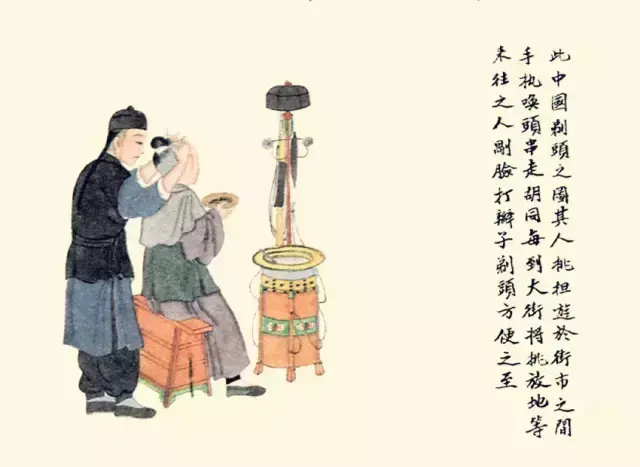 此中國剃頭之圖其人挑担遊於街市之間
手执喚頭串走胡同每到大街将挑放地等
来往之人剐臉打辮子剃頭方便之至